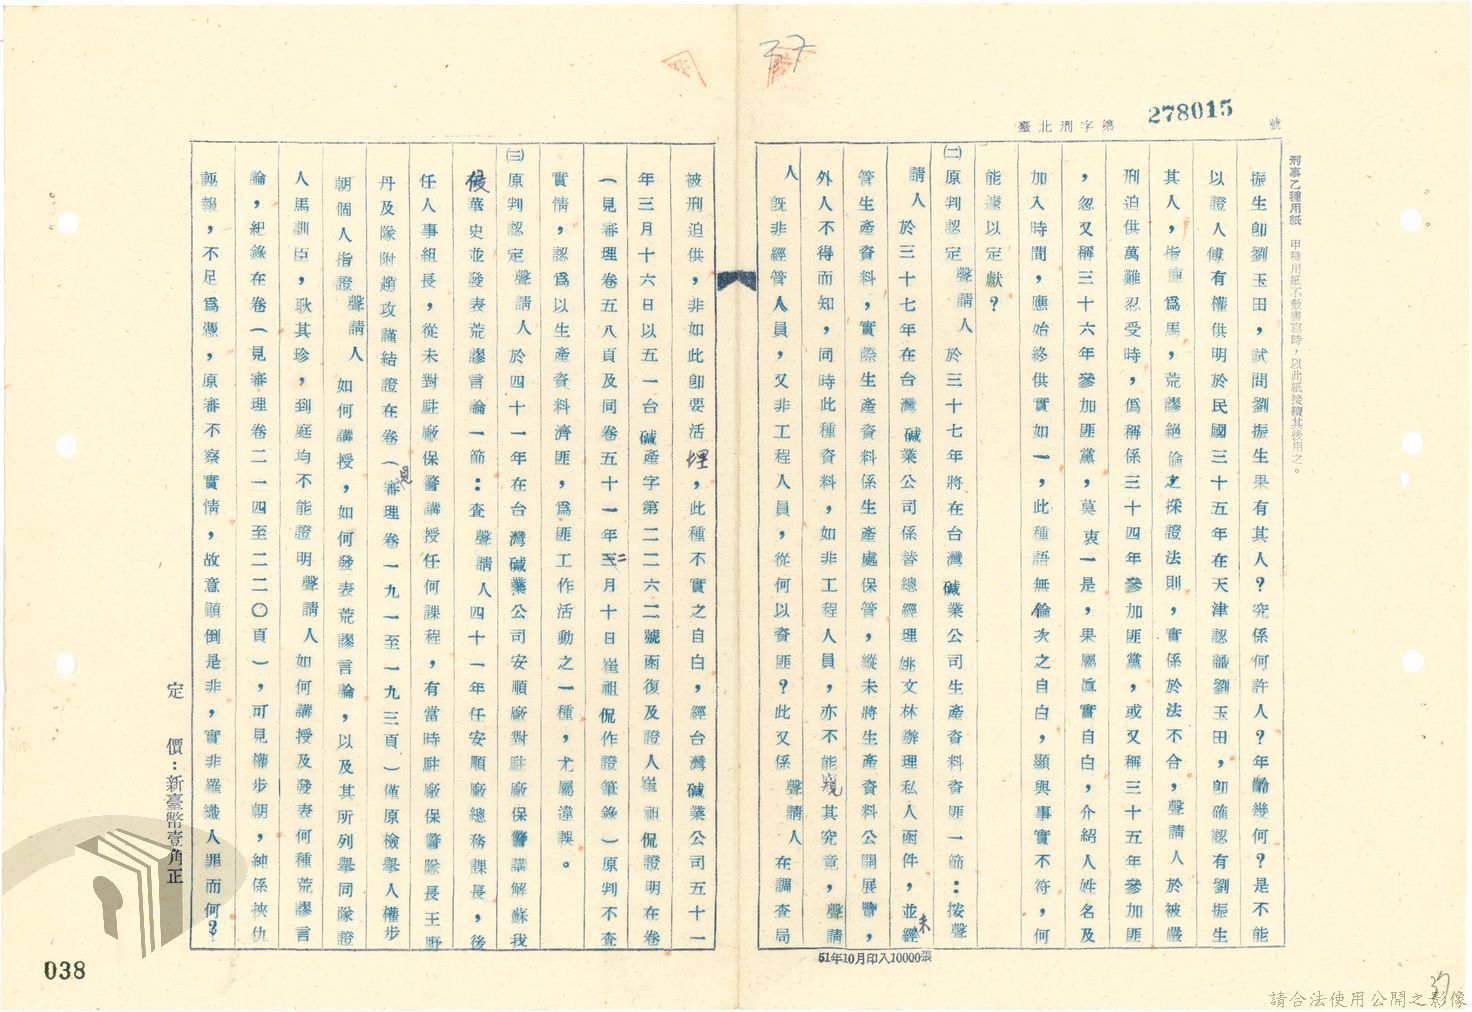 37
278015
臺北刑字第　　號
刑事乙種用紙　甲種用紙不敷書寫時，以此紙接續其後用之。
振生卽劉玉田，試問劉振生果有其人？究係何許人？年齡幾何？是不能
以證人傅有權供明於民國三十五年在天津認識劉玉田，卽確認有劉振生
其人，指鹿爲馬，荒謬絕倫之採證法則，實係於法不合，聲請人於被嚴
刑迫供萬難忍受時，僞稱係三十四年參加匪黨，或又稱三十五年參加匪
，忽又稱三十六年參加匪黨，莫衷一是，果屬眞實自白，介紹人姓名及
加入時間，應始終供實如一，此種語無倫次之自白，顯與事實不符，何
能據以定讞？
㈡原判認定聲請人於三十七年將在台灣碱業公司生產資料資匪一節：按聲
請人於三十七年在台灣碱業公司係替總經理姚文林辦理私人函件，並未經
管生產資料，實際生產資料係生產處保管，縱未將生產資料公開展覽，
外人不得而知，同時此種資料，如非工程人員，亦不能窺其究竟，聲請
人旣非經管人員，又非工程人員，從何以資匪？此又係聲請人在調查局
51年10月印入10000張
被刑迫供，非如此卽要活埋，此種不實之自白，經台灣碱業公司五十一
年三月十六日以五一台碱產字第二二六二號函復及證人崔祖侃證明在卷
（見審理卷五八頁及同卷五十一年二月十日崔祖侃作證筆錄）原判不查
實情，認爲以生產資料濟匪，爲匪工作活動之一種，尤屬違誤。
㈢原判認定聲請人於四十一年在台灣碱業公司安順廠對駐廠保警講解蘇我
侵華史並發表荒謬言論一節：查聲請人四十一年任安順廠總務課長，後
任人事組長，從未對駐廠保警講授任何課程，有當時駐廠保警隊長王野
丹及隊附趙攻謹結證在卷（見審理卷一九一至一九三頁）僅原檢舉人權步
朝個人指證聲請人如何講授，如何發表荒謬言論，以及其所列舉同隊證
人馬訓臣，耿其珍，到庭均不能證明聲請人如何講授及發表何種荒謬言
論，紀錄在卷（見審理卷二一四至二二〇頁），可見權步朝，純係挾仇
誣報，不足爲憑，原審不察實情，故意顚倒是非，實非羅織人罪而何？
定　價：新臺幣壹角正
038
37
請合法使用公開之影像